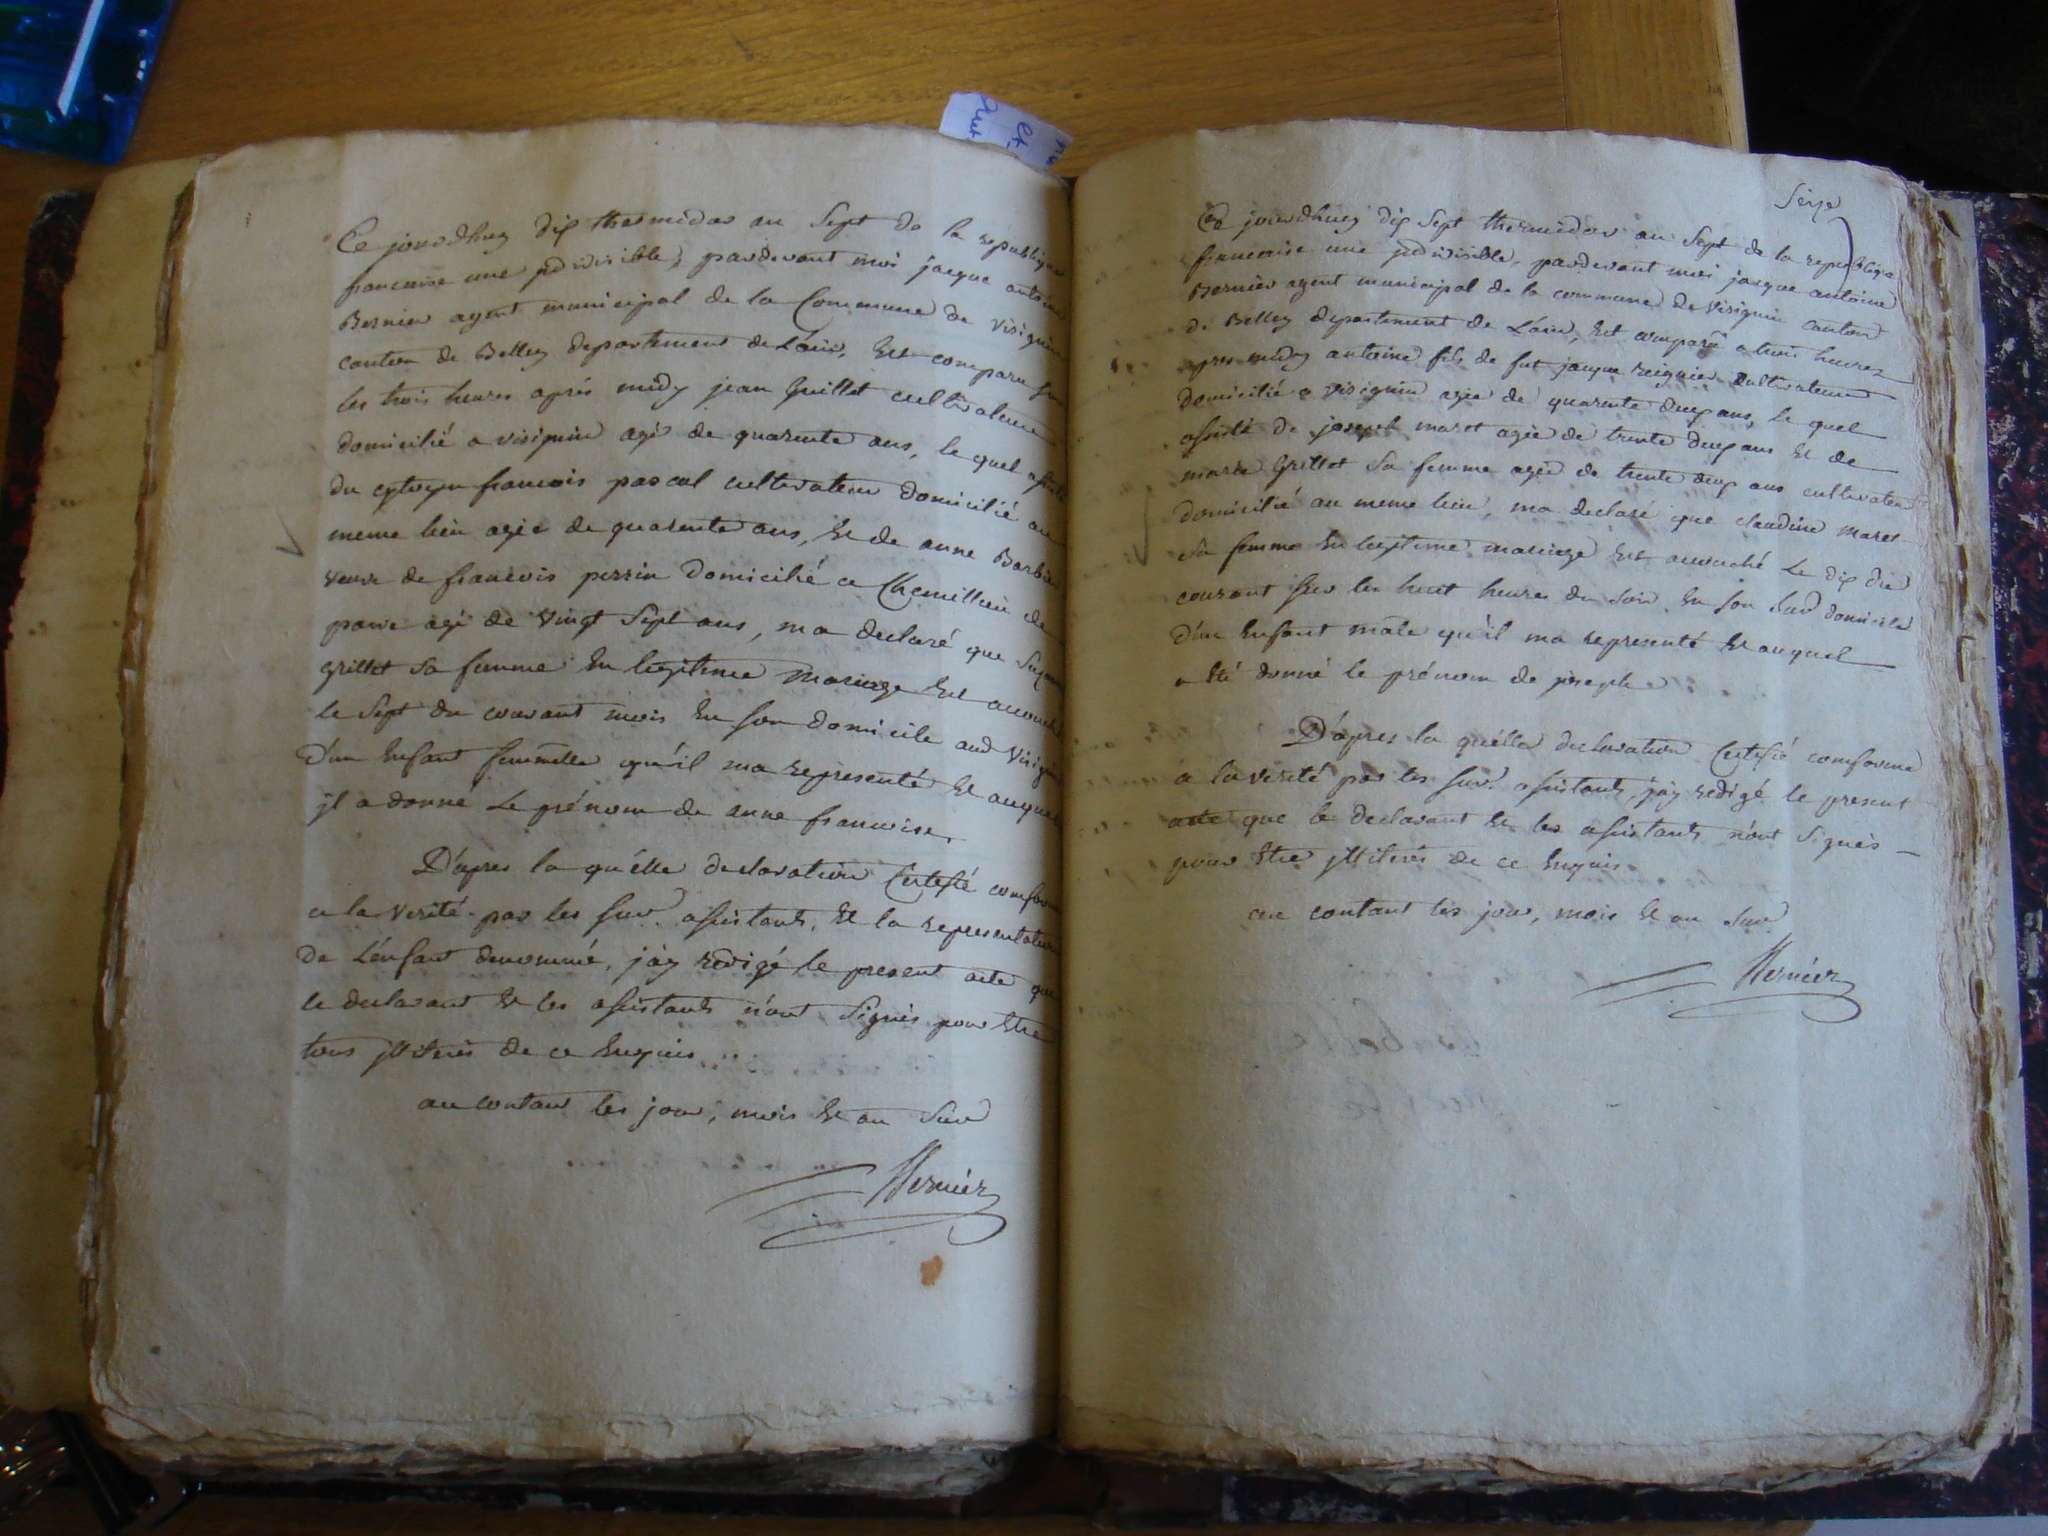 Ce jourdhuy dix thermidor an Sept de la republique
francoise une jndivisible, pardevant moi jacque antoine
Bernier agent municipal de la Commune de visignin
canton de Belley departement de L'ain, Est comparu sur
les trois heures aprés midy jean Guillet cultivateur
domicilié a visignin agé de quarente ans, le quel assisté
du cytoyen francois pascal cultivateur domicilié au
meme lieu agée de quarente ans, Et de anne Barbier
veuve de francois perrin domicilié a Chemillieu de
parve agé de vingt Sept ans, ma declaré que
Grillet Sa femme En legitime mariage Est accouché
le Sept du courant mois En son domicile aud visignin
D'un Enfant femmelle qu'il ma representé Et auquel
jl a donné Le prénom de anne francoise,
D'apres la quélle declaration Certifié comforme
a la verité par les sur. assistants, Et la representation
De L'enfant denommé, j'ay redigé le present acte que
le declarant Et les assistants n'ont Signés pour Etre
tous jlliterés de ce Enquis
au contant les jour, mois Et an Sur
Bernier
et
Seize
Ce jourdhuy dix Sept thermidor an Sept de la republique
francoise une jndivisible, pardevant moi jacque antoine
Bernier agent municipal de la commune de visignin canton
de Belley departement de L'ain, Est comparu a trois heures
apres midy antoine fils de fut jacque reignier cultivateur
domicilié a visignin agée de quarente deux ans, le quel
assisté de joseph maret agée de trente deux ans Et de
marie Grillet Sa femme agée de trente deux ans cultivateur
domicilié au meme lieu, ma declaré que claudine maret
Sa femme En legitime mariage Est accouché Le dix du
courant sur les huit heures du Soir En son sur domicile
d'un Enfant male qu'il ma representé Et auquel
a Eté donné le prénom de joseph
D'apres la quélle declaration Certifié comforme
a la verité par les sur. assistants, j'ay redigé le present
acte que le declarant Et les assistants n'ont Signés
pour Etre jlliterés de ce Enquis
au contant les jour, mois Et an Sur
Bernier